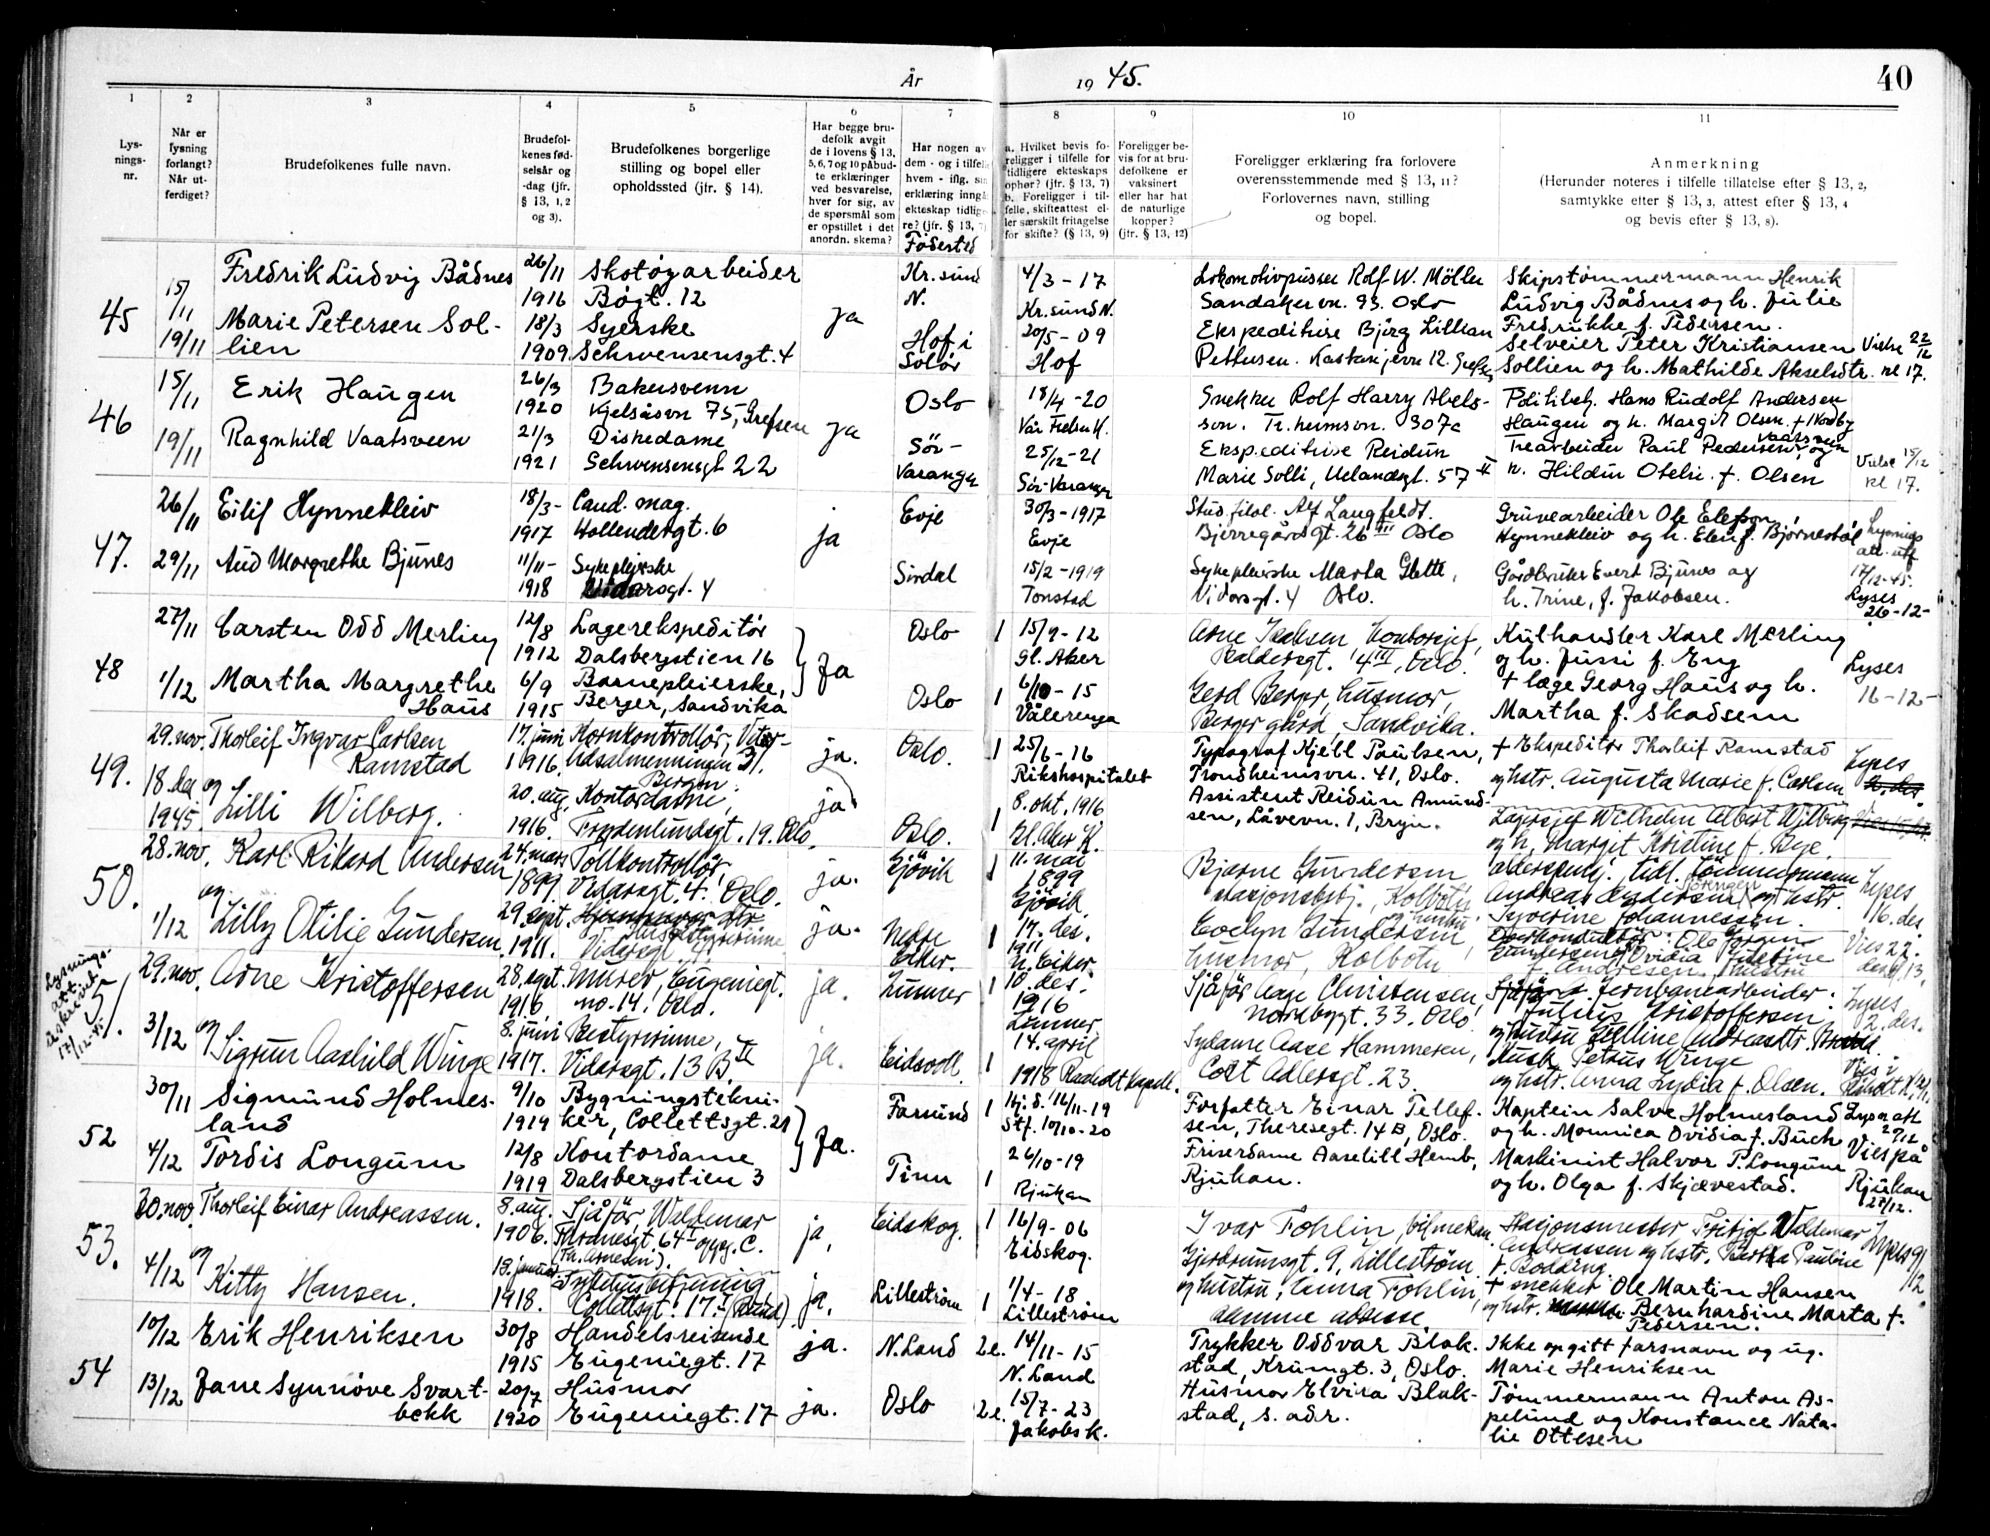 År 1945.
40
1 2 3 4 5 6 7 8 9 10 11
Lys-
nings-
nr.
Når er
lysning
forlangt?
Når ut-
ferdiget?
Brudefolkenes fulle navn.
Brudefol-
kenes fød-
selsår og
-dag (jfr.
§ 13, 1, 2
og 3).
Brudefolkenes borgerlige
stilling og bopel eller
opholdssted (jfr. § 14).
Har begge bru-
defolk avgit
de i lovens § 13,
5, 6, 7 og 10 påbud-
te erklæringer
ved besvarelse,
hver for sig, av
de spørsmål som
er opstillet i det
anordn. skema?
Har nogen av
dem - og i tilfelle
hvem - iflg. sin
erklæring inngå
ekteskap tidlige-
re? (jfr. § 13, 7)
Fødested
a. Hvilket bevis fo-
religger i tilfelle for
tidligere ekteskaps
ophør? (jfr. § 13, 7)
b. Foreligger i til-
felle, skifteattest el-
ler særskilt fritagelse
for skifte? (§ 13, 9)
Foreligger be-
vis for at bru-
defolkene er
vaksinert
eller har hat
de naturlige
kopper?
(jfr. § 13, 12)
Foreligger erklæring fra forlovere
overensstemmende med § 13, 11?
Forlovernes navn, stilling
og bopel.
Anmerkning
(Herunder noteres i tilfelle tillatelse efter § 13, 2,
samtykke efter § 13, 3, attest efter § 13, 4
og bevis efter § 13, 8).
45
15/11
19/11
Fredrik Ludvig Bådnes
Marie Petersen Sol-
lien
26/11
1916
18/3
1909
Skotøyarbeider
Bøgt. 12
Syerske
Schwensensgt. 4
ja
Kr.sund
N.
Hof i
Solør
4/3 - 17
Kr.sund N.
20/5 - 09
Hof
Lokomotivpusser Rolf W. Möller
Sandakervn. 93. Oslo
Ekspeditrise Bjørg Lillian
Pettersen.
Skipstømmermann Henrik
Ludvig Bådnes og h. Julie
Fredrikke f. Pedersen.
Selveier Peter Kristiansen
Sollien og h. Mathilde Akselsdtr.
Vielse 22/12
kl 17.
46
15/11
19/11
Erik Haugen
Ragnhild Vaatsveen
26/3
1920
21/3
1921
Bakersvenn
Kjelsåsvn 75, Grefsen
Diskedame
Schwensensgt 22
ja
Oslo
Sör-
Varanger
18/4 - 20
Vår Frelsers K.
25/12 - 21
Sör-Varanger
Snekker Rolf Harry Abels-
son. Tr.heimsvn. 307c
Ekspeditrise Reidun
Marie Solli, Uelandsgt. 57 II
Politibetj. Hans Rudolf Andersen
Haugen og h. Margit Olsen. f. Nordby
Trearbeider Paul Pedersen Vaatsveen og
h. Hildur Otelie f. Olsen
Vielse 15/12
kl 17.
47.
26/11
29/11
Eilif Hynnekleiv
Aud Margrethe Bjunes
18/3-
1917
11/11-
1918
Cand. mag.
Hollendergt. 6
Sykepleierske
Vidarsgt. 4
ja
Evje
Sirdal
30/3 - 1917
Evje
15/2 - 1919
Tonstad
Stud. filol. Alf Langfeldt.
Bjerregårdsgt. 26 III Oslo
Sykepleierske Marta Glette,
Vidarsgt. 4 Oslo.
Gruvearbeider Ole Elefsen
Hynnekleiv og h. Elen f. Bjørnestøl
Gårdbruker Evert Bjunes og
h. Trine, f. Jakobsen.
Lysnings
att. utf
17/12-45.
Lyses
26-12-
48
27/11
1/12
Carsten Odd Merling
Martha Margrethe
Haus
12/8
1912
6/9
1915
Lagerekspeditør
Dalsbergstien 16
Barnepleierske,
Berger, Sandvika
Ja
Oslo
Oslo
1
1
15/9 - 12
Gl. Aker
6/10 - 15
Vålerenga
Arne Isaksen, kontorsjef,
Baldersgt. 14 III, Oslo.
Gerd Berger, husmor,
Berger gård, Sandvika.
Kulhandler Karl Merling
og h. Jussi f. Eng
+ læge Georg Haus og h.
Martha f. Skadsem
Lyses
16-12-
49.
29. nov.
18. des
1945.
Thorleif Ingvar Carlsen
Ramstad
og
Lilli Wilberg.
17. juni
1916.
20. aug.
1916.
Kornkontrollør,
Bergen.
Kontordame,
Frydenlundsgt. 19. Oslo.
ja.
ja
Oslo.
Oslo.
1
1
25/6 - 16
Rikshospitalet
8. okt. 1916
Gl. Aker K.
Typograf Kjell Paulsen,
Trondheimsvn. 41, Oslo.
Assistent Reidun Amund-
sen, Låvevn. 1, Bryn.
+ Ekspeditør Thorleif Ramstad
og hstr. Augusta Marie f. Carlsen
Lagersjef Wilhelm Albert Wilberg
og h. Margit Kristine f. Bye.
Lyses
50.
28. nov.
1/12
Karl Rikard Andersen
og
Lilly Otilie Gundersen
24. mars
1899.
29. sept.
1911.
Tollkontrollør,
Vidarsgt. 4. Oslo.
Vidarsgt. 4.
ja.
ja.
Gjövik
Nedre
Eiker.
1
1
11. mai
1899
Gjövik.
17. des.
1911
N. Eiker.
Bjarne Gundersen
stasjonsbetj., Kolbotn
og hustru
Evelyn Gundersen
husmor, Kolbotn
alderspensj. tidl. tömmermann
Andreas Andersen og hstr.
Syverine Johannessen.
Overkonduktör Ole Jörgen
Gundersen, Ovidia Josefine
f. Andresen, hustru
Lyses
16. des.
Vies 22.
des kl 13.
51.
Lysnings-
att.
utskrevet
17/12-45
29. nov.
3/12
Arne Kristoffersen
og
Sigrun Aashild Winge
28. sept.
1916.
8. juni
1917.
Murer, Eugeniegt.
no. 14. Oslo.
Bestyrerinne,
Vidarsgt. 13 B II
ja.
ja.
Lunner
Eidsvoll.
1
1
10. des.
1916
Lunner.
14. april
1918
Sjåför Aage Christensen,
Nordbygt. 33. Oslo
Sydame Aase Hammeren,
Cort Adlersgt. 23.
jernbanearbeider
Julius Kristoffersen
og hustru
Petrus Winge
og hstr. Anna Lydia f. Olsen.
Lyses
2. des.
Vies i
52
30/11
4/12
Sigmund Holmes-
land
Tordis Longum
9/10
1919
12/8
1919
Bygningstekni-
ker, Collettsgt. 21
Kontordame
Dalsbergstien 3
Ja.
Farsund
Tinn
1
1
Hj.d. 16/11-19
Stf. 10/10-20
26/10-19
Rjukan
Forfatter Einar Tellef-
sen, Theresegt. 14 B, Oslo.
Friserdame Aaselill Hemb,
Rjukan.
Kaptein Salve Holmesland
og h. Monnica Ovidia f. Buch
Maskinist Halvor P. Longum
og h. Olga f. Skjævestad.
Lysn att
2/12
Vies på
Rjukan
27/12.
53.
30. nov.
4/12
Thorleif Einar Andreassen.
og
Kitty Hansen.
8. aug.
1906.
19. januar
1918.
Sjåför, Waldemar
Thranesgt. 64 I oppg. C.
(Th. Arnesen).
Sykehusbetjening
Collettsgt. 17.
ja,
ja.
Eidskog.
Lilleström
1
1
16/9 - 06
Eidskog.
1/4 - 18
Lilleström
Ivar Fohlin, bilmekan.
Gjerdrumsgt. 9, Lilleström
og hustru, Emma Fohlin,
samme adresse.
Stasjonsmester Fritjof Valdemar
Andreassen og hstr. Bertha Pauline
f. Bodding
+ snekker Ole Martin Hansen
og hstr. Bernhardine Marta f.
Pedersen.
Lyses 9/12.
54
10/12
13/12
Erik Henriksen
Jane Synnöve Svart-
bekk
30/8
1915
20/7
1920
Handelsreisende
Eugeniegt. 17
Husmor
Eugeniegt. 17
ja.
ja.
N. Land
Oslo
2e.
2e.
14/11 - 15
N. Land
15/7 - 23
Jakobs k.
Trykker Oddvar Blak-
stad, Krumgt. 3, Oslo.
Husmor Elvira Blak-
stad, s. adr.
Ikke oppgitt farsnavn og ug.
Marie Henriksen
Tömmermann Anton As-
pelund og Konstance Nata-
lie Ottesen